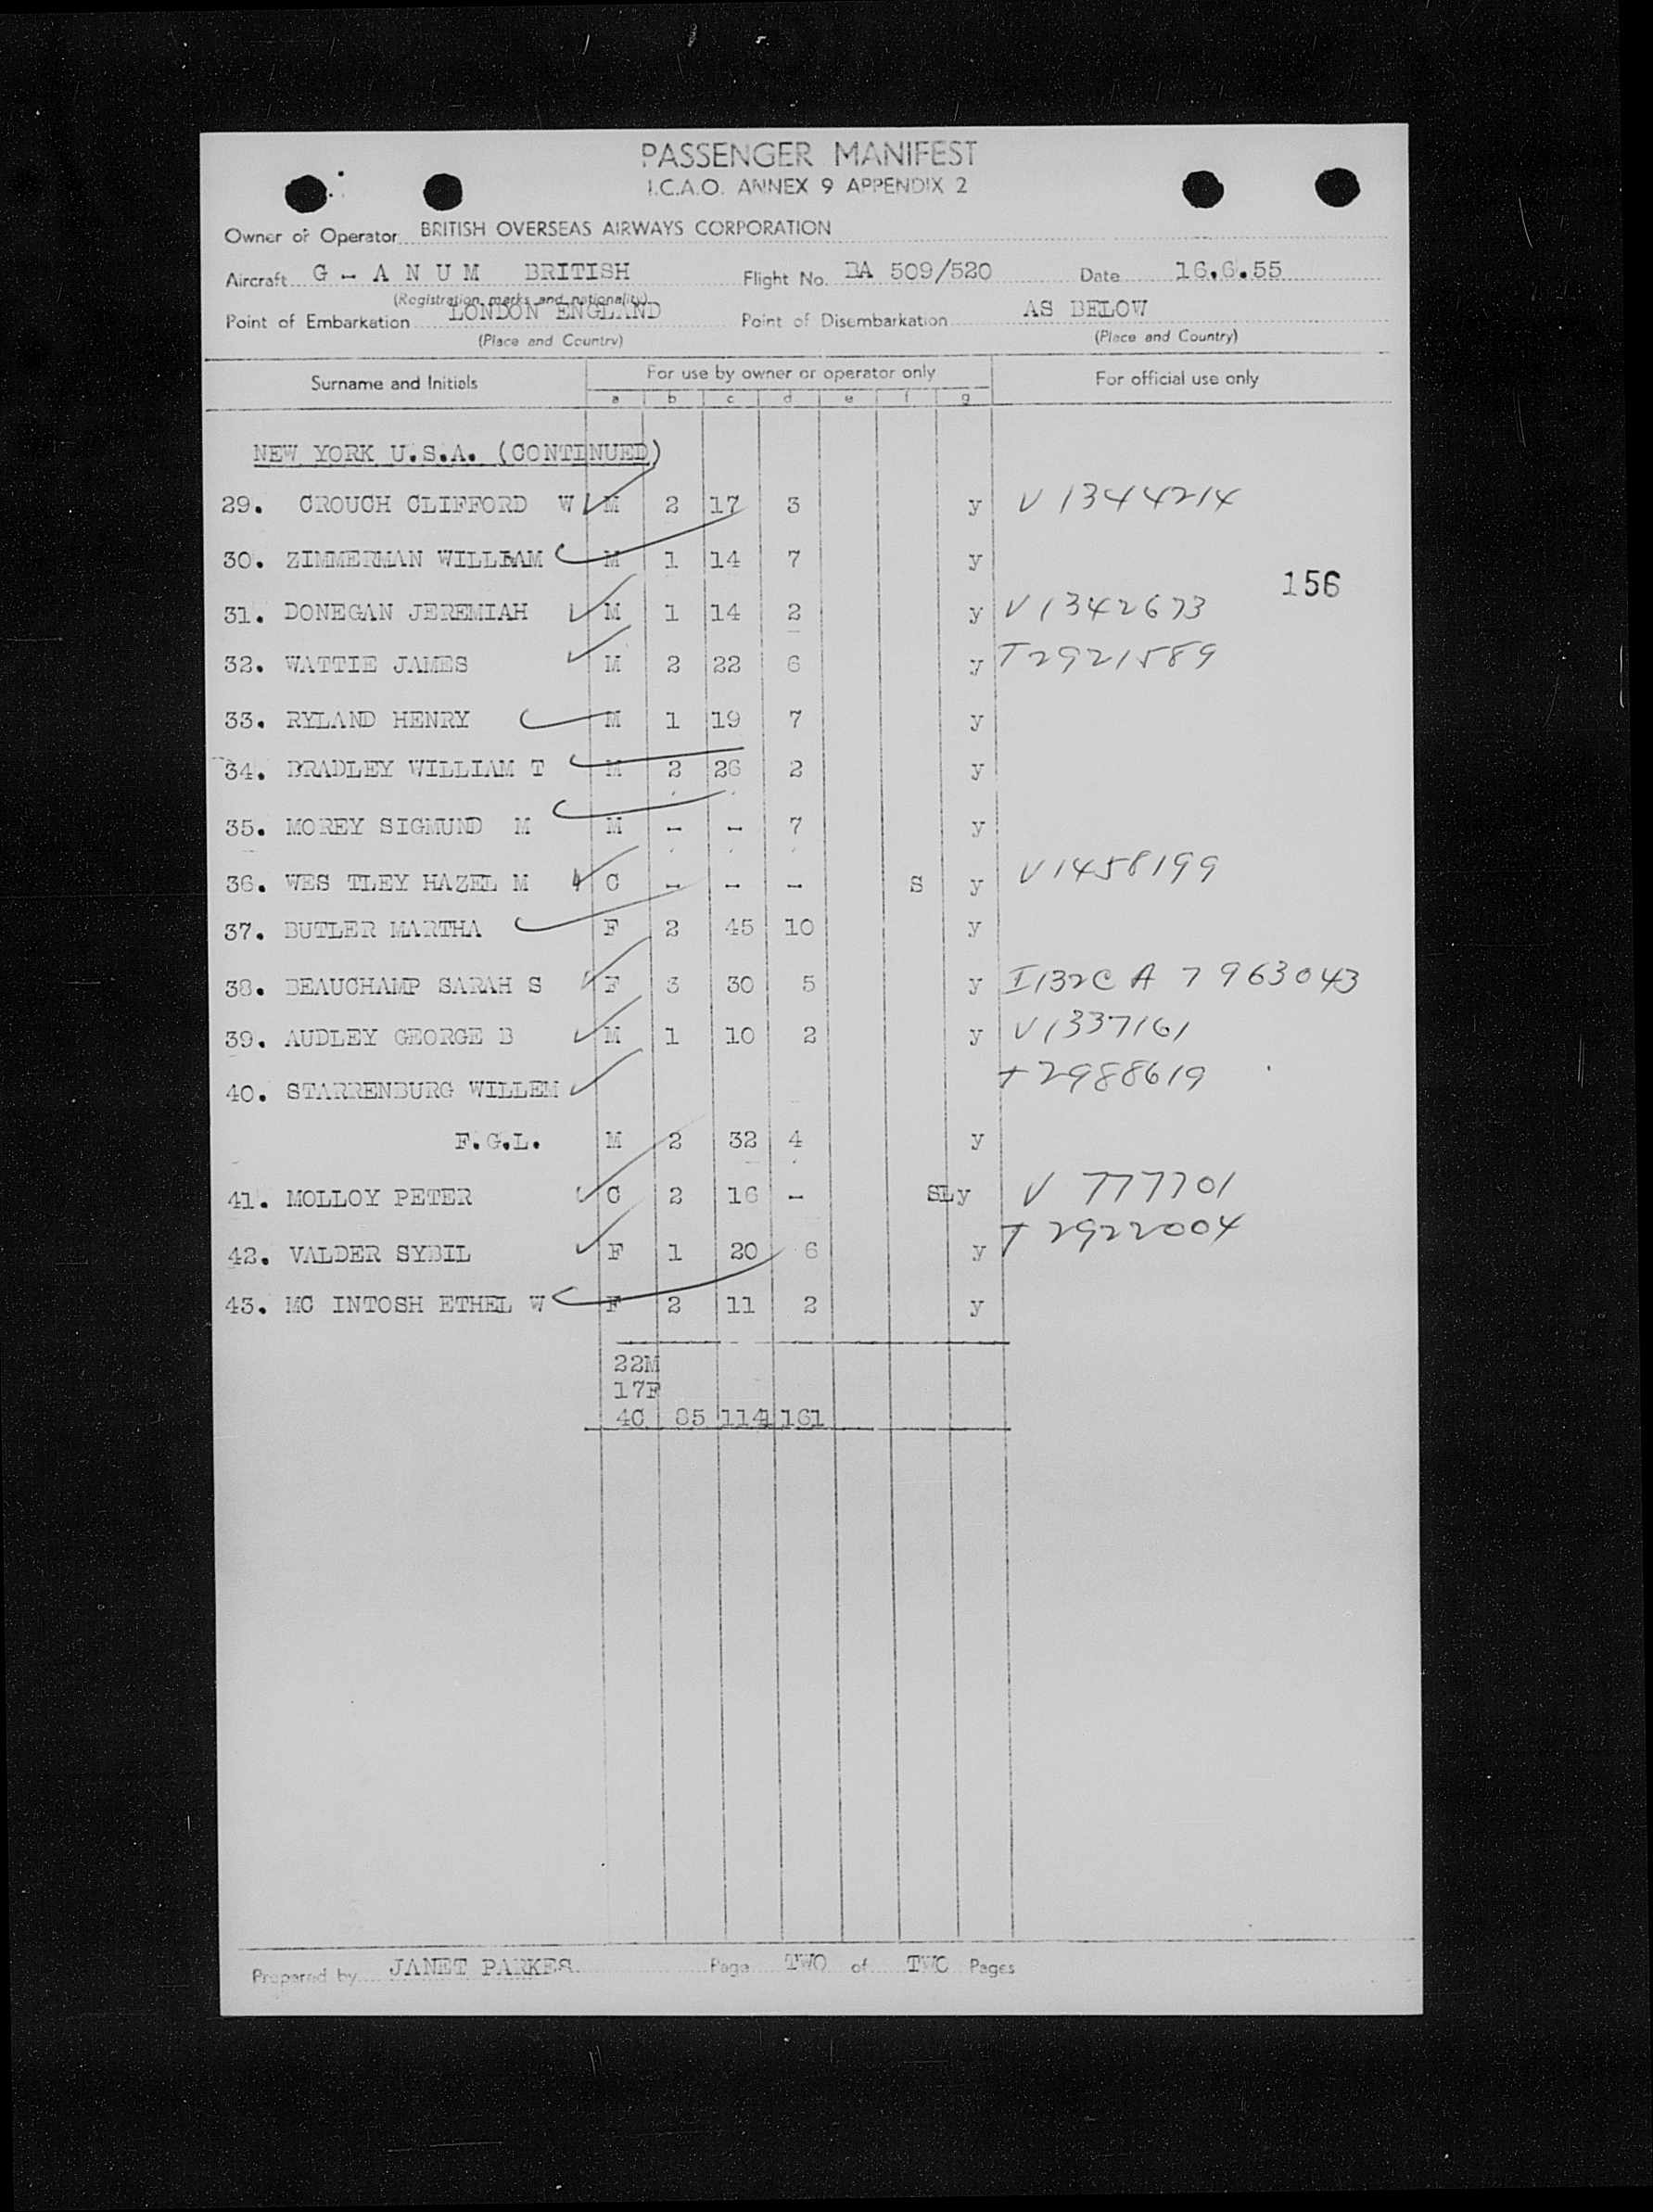 PASSENGER MANIFEST
I.C.A.O. ANNEX 9 APPENDIX 2
Owner or Operator BRITISH OVERSEAS AIRWAYS CORPORATION
Aircraft G - A N U M BRITISH Flight No. BA 509/520 Date 16.6.55
(Registration marks and nationality)
Point of Embarkation LONDON ENGLAND Point of Disembarkation AS BELOW
(Place and Country) (Place and Country)
Surname and Initials For use by owner or operator only For official use only
a b c d e f g
NEW YORK U.S.A. (CONTINUED)
29. CROUCH CLIFFORD W M 2 17 3 y V 1344214
30. ZIMMERMAN WILLIAM M 1 14 7 y
156
31. DONEGAN JEREMIAH M 1 14 2 y V1342673
32. WATTIE JAMES M 2 22 6 y T2921589
33. RYLAND HENRY M 1 19 7 y
34. BRADLEY WILLIAM T M 2 26 2 y
35. MOREY SIGMUND M M - - 7 y
36. WES TLEY HAZEL M C - - - S y V1458199
37. BUTLER MARTHA F 2 45 10 y
38. BEAUCHAMP SARAH S F 3 30 5 y I132C A 7963043
39. AUDLEY GEORGE B M 1 10 2 y V1337161
40. STARRENBURG WILLEM T2988619
F.G.L. M 2 32 4 y
41. MOLLOY PETER C 2 16 - SLy V 777701
42. VALDER SYBIL F 1 20 6 y T 2922004
43. MC INTOSH ETHEL W F 2 11 2 y
22M
17F
4C 85 1144 161
Prepared by JANET PARKES Page TWO of TWO Pages